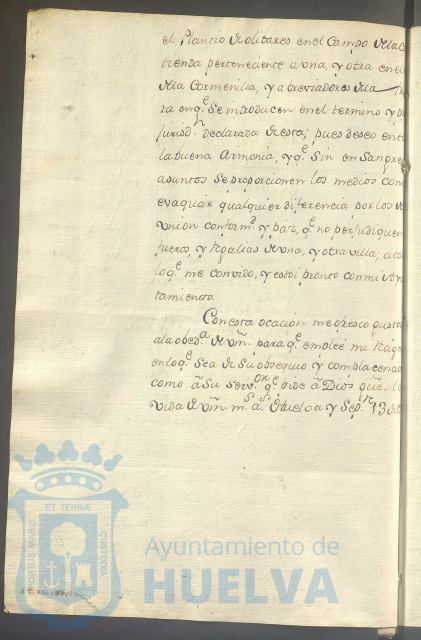 el Plantio de olibares en el Campo de la
tienda perteneciente a una, y otra en el
de la Cormenilla, y abrevaderos de la
ra en q.e se introducen en el termino y
jurisd.n declarada de esta; pues deseo en
la buena Armonia, y q.e sin ensangre
asuntos se proporcionen los medios com
evaquar qualquier diferencia por los de
Union conform.d y paz, q.e no perjudiquen
fueros, y Regalias de una, y otra villa; a
lo q.e me convido, y estoi pronto con mi Ayn
tamiento.
Con esta ocacion me ofresco gusto
a la obed.a de Vm. para q.e emplee mi
en lo q.e sea de su obsequio y complacencia
como a su serv.or q.e pide a Dios gue. la
vida de Vm. m.s a.s Huelva y Sep.re 13 de
PORTUS MARIS ET TERRÆ CUSTODIA
Ayuntamiento de
HUELVA